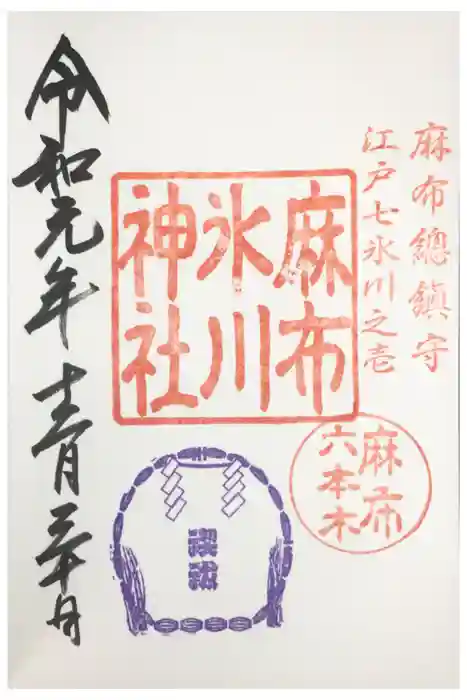 麻布總鎮守
江戸七氷川之壱
麻布
氷川
神社
麻布
六本木
禊祓
令和元年十二月三十日